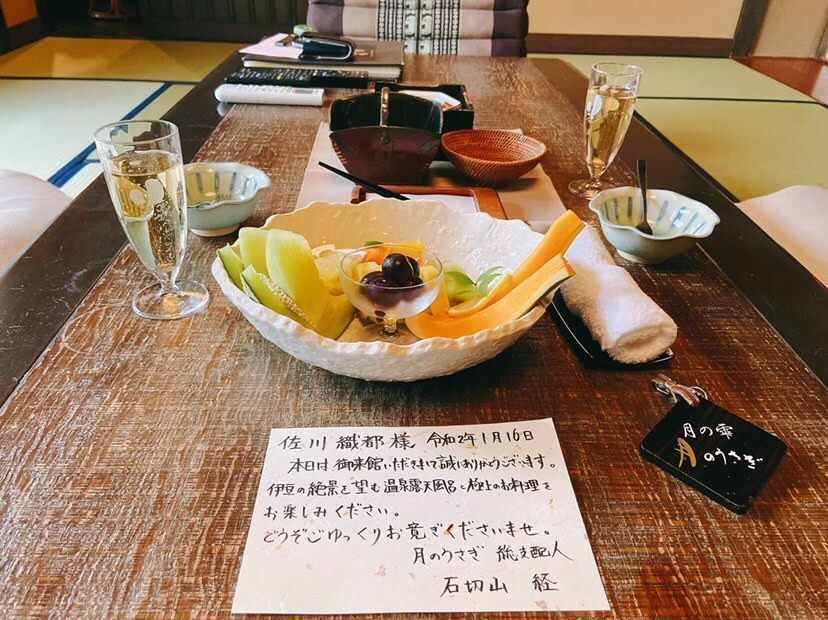 佐川 織都 様 令和2年1月16日
本日は御来館いただきまして誠にありがとうございます。
伊豆の絶景を望む温泉露天風呂と極上のお料理を
お楽しみください。
どうぞごゆっくりお寛ぎくださいませ。
月のうさぎ 総支配人
石切山 経
月の雫
月のうさぎ